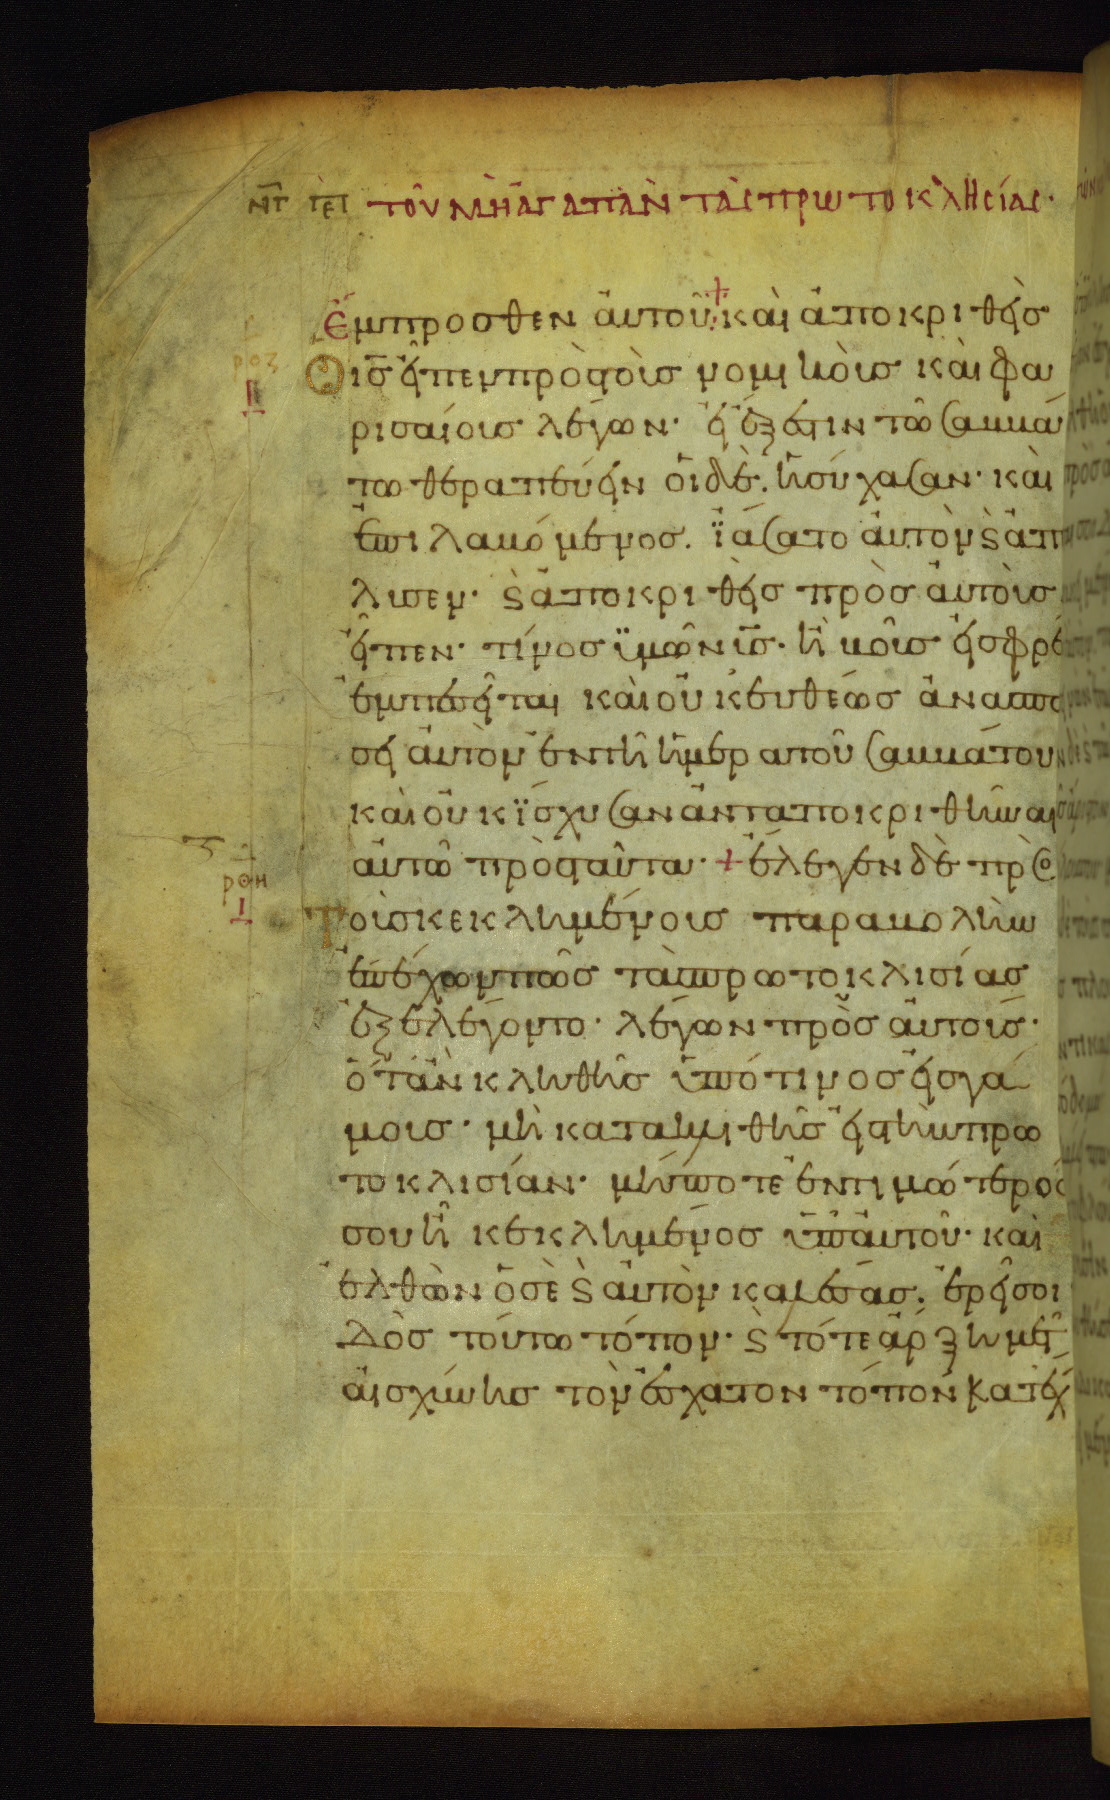 ΝΓ ΠΕΡΙ ΤΟῦ ΜῊ ἈΓΑΠᾶΝ ΤᾺΣ ΠΡΩΤΟΚΛΗΣΊΑΣ·
Ἔμπροσθεν αὐτοῦ· + καὶ ἀποκριθεὶς
ρος
Ὁ ις̅ εἶπεν πρὸς τοὺς νομικοὺς καὶ φα
ρισαίους λέγων· εἰ ἔξεστιν τῶ σαββά
τω θεραπεύειν οἱ δὲ. ἡσύχασαν· καὶ
ἐπιλαβόμενος. ἰάσατο αὐτὸν ϛ ἀπέ
λυσεν· ϛ ἀποκριθεὶς πρὸς αὐτοὺς
εἶπεν· τίνος ὑμῶν υς̅· ἢ βοῦς εἰς φρέ
ἐμπεσεῖται καὶ οὐκ εὐθέως ἀνασπά
σει αὐτὸν ἐν τῆ ἡμέρα τοῦ σαββάτου
καὶ οὐκ ἴσχυσαν ἀνταποκριθῆναι
αὐτῶ πρὸς ταῦτα· + ἔλεγεν δὲ πρὸς
ροη
Τοὺς κεκλημένους παραβολὴν
ἐπέχων πῶς τὰς πρωτοκλισίας
ἐξελέγοντο· λέγων πρὸς αὐτούς·
ὅταν κληθῆς ὑπό τινος εἰς γά
μους· μὴ κατακλιθῆς εἰς τὴν πρω
τοκλισίαν· μήποτε ἐντιμώτερός
σου ἦ κεκλημένος ὑπ' αὐτοῦ· καὶ
ἐλθὼν ὁ σὲ ϛ αὐτὸν καλέσας. ἐρεῖ σοι
Δὸς τούτω τόπον· ϛ τότε ἄρξη μετ
αἰσχύνης τὸν ἔσχατον τόπον κατέχ